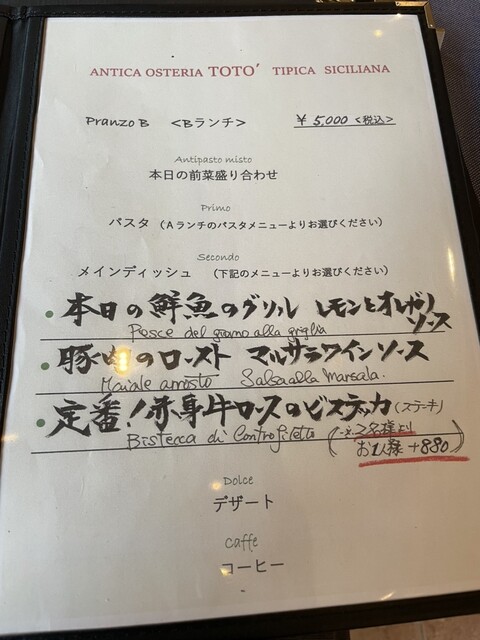 ANTICA OSTERIA TOTO' TIPICA SICILIANA
Pranzo B <Bランチ> ¥5,000 <税込>
Antipasto misto
本日の前菜盛り合わせ
Primo
パスタ (Aランチのパスタメニューよりお選びください)
Secondo
メインディッシュ (下記のメニューよりお選びください)
• 本日の鮮魚のグリル レモンとオレガノソース
Pesce del giorno alla griglia
• 豚肉のロースト マルサラワインソース
Maiale arrosto Salsa alla marsala.
• 定番!赤身牛ロースのビステッカ (ステーキ)
Bistecca di Controfiletto (※2名様より
お1人様 +880)
Dolce
デザート
Caffe
コーヒー